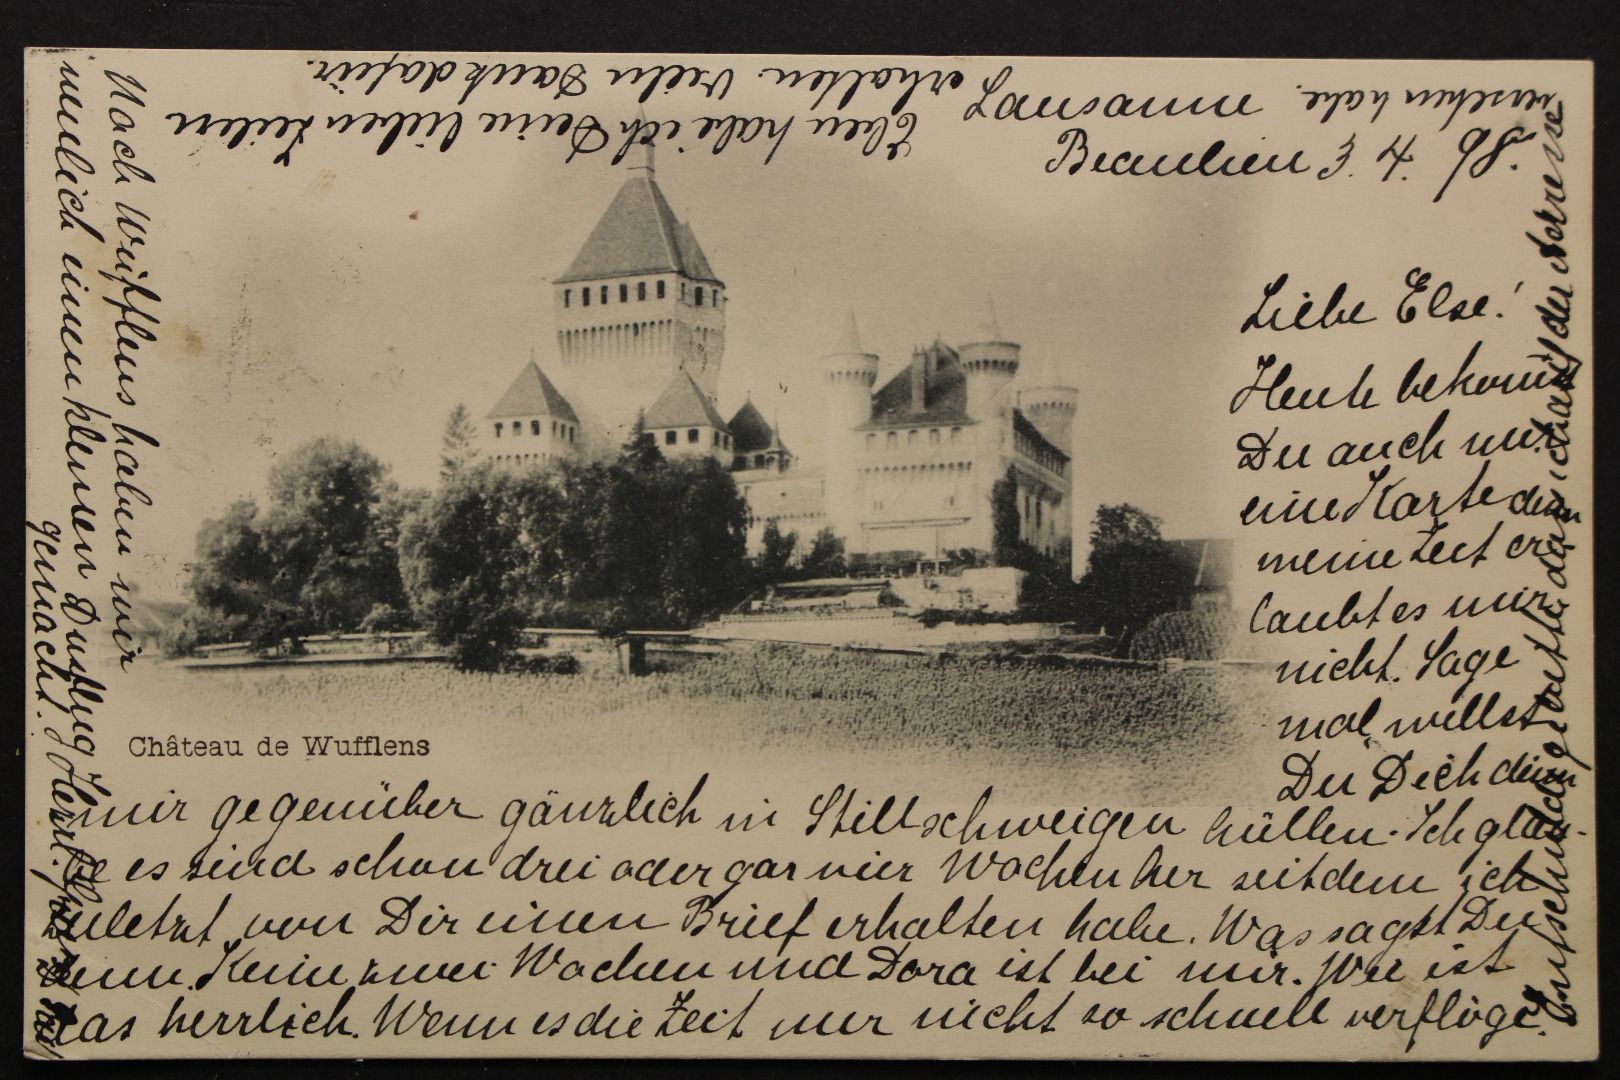 Beaulieu 3. 4. 98.
Liebe Else!
Heute bekommst
Du auch nur
eine Karte denn
meine Zeit er
laubt es mir
nicht. Sage
mal, willst
Du Dich denn
mir gegenüber gänzlich in Stillschweigen hüllen. Ich glau-
be es sind schon drei oder gar vier Wochen her seitdem ich
zuletzt von Dir einen Brief erhalten habe. Was sagst Du
denn. Keine zwei Wochen und Dora ist bei mir. Wie ist
das herrlich. Wenn es die Zeit nur nicht so schnell verflöge.
Nach Wufflens haben wir
neulich einen kleinen Ausflug
gemacht. Herzl.
Entschuldige bitte daß ich auf der Adresse
Lausanne
versehen habe.
Eben habe ich Deine lieben Zeilen
erhalten. Vielen Dank dafür.
Château de Wufflens